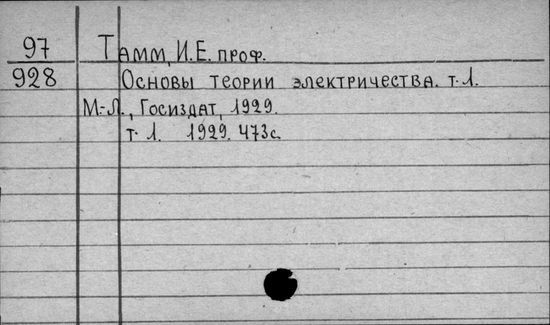 97 Тамм, И.Е. проф.
928 Основы теории электричества. т.1.
М.-Л., Госиздат, 1929.
т. 1. 1929. 473с.